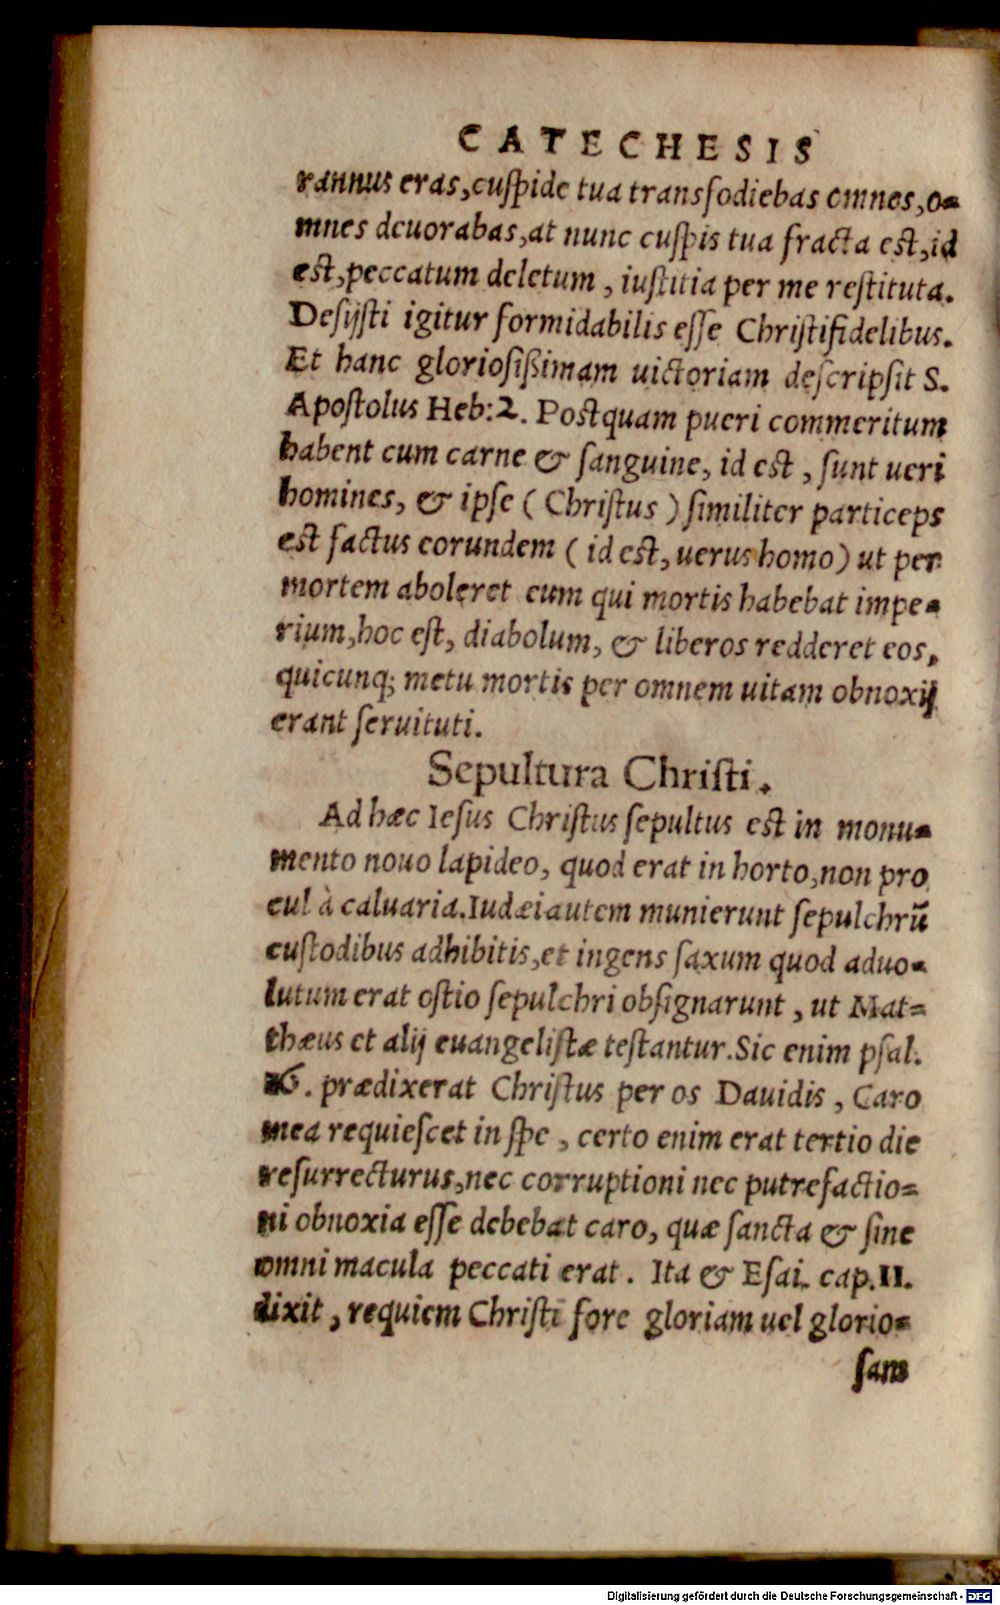 CATECHESIS
rannus eras,cuſpide tua transfodiebas omnes,o=
mnes deuorabas,at nunc cuſpis tua fracta est,id
est,peccatum deletum, iuſtitia per me reſtituta.
Deſijſti igitur formidabilis eſſe Chriſtifidelibus.
Et hanc glorioſißimam uictoriam deſcripſit S.
Apoſtolus Heb:2. Postquam pueri commeritum
habent cum carne & ſanguine, id est, ſunt ueri
homines, & ipſe (Chriſtus) ſimiliter particeps
est factus eorundem (id est, uerus homo) ut per
mortem aboleret eum qui mortis habebat impe=
rium,hoc eſt, diabolum, & liberos redderet eos,
quicunq; metu mortis per omnem uitam obnoxij
erant ſeruituti.
Sepultura Chriſti.
Ad hæc Ieſus Chriſtus ſepultus est in monu=
mento nouo lapideo, quod erat in horto,non pro
cul à caluaria.Iudæi autem munierunt ſepulchrū
cuſtodibus adhibitis,et ingens ſaxum quod aduo=
lutum erat oſtio ſepulchri obſignarunt, ut Mat=
thæus et alij euangeliſtæ teſtantur.Sic enim pſal.
16. prædixerat Chriſtus per os Dauidis, Caro
mea requieſcet in ſpe, certo enim erat tertio die
reſurrecturus,nec corruptioni nec putrefactio=
ni obnoxia eſſe debebat caro, quæ ſancta & ſine
omni macula peccati erat. Ita & Eſai. cap.II.
dixit, requiem Chriſti fore gloriam uel glorio=
ſam
Digitalisierung gefördert durch die Deutsche Forschungsgemeinschaft - DFG